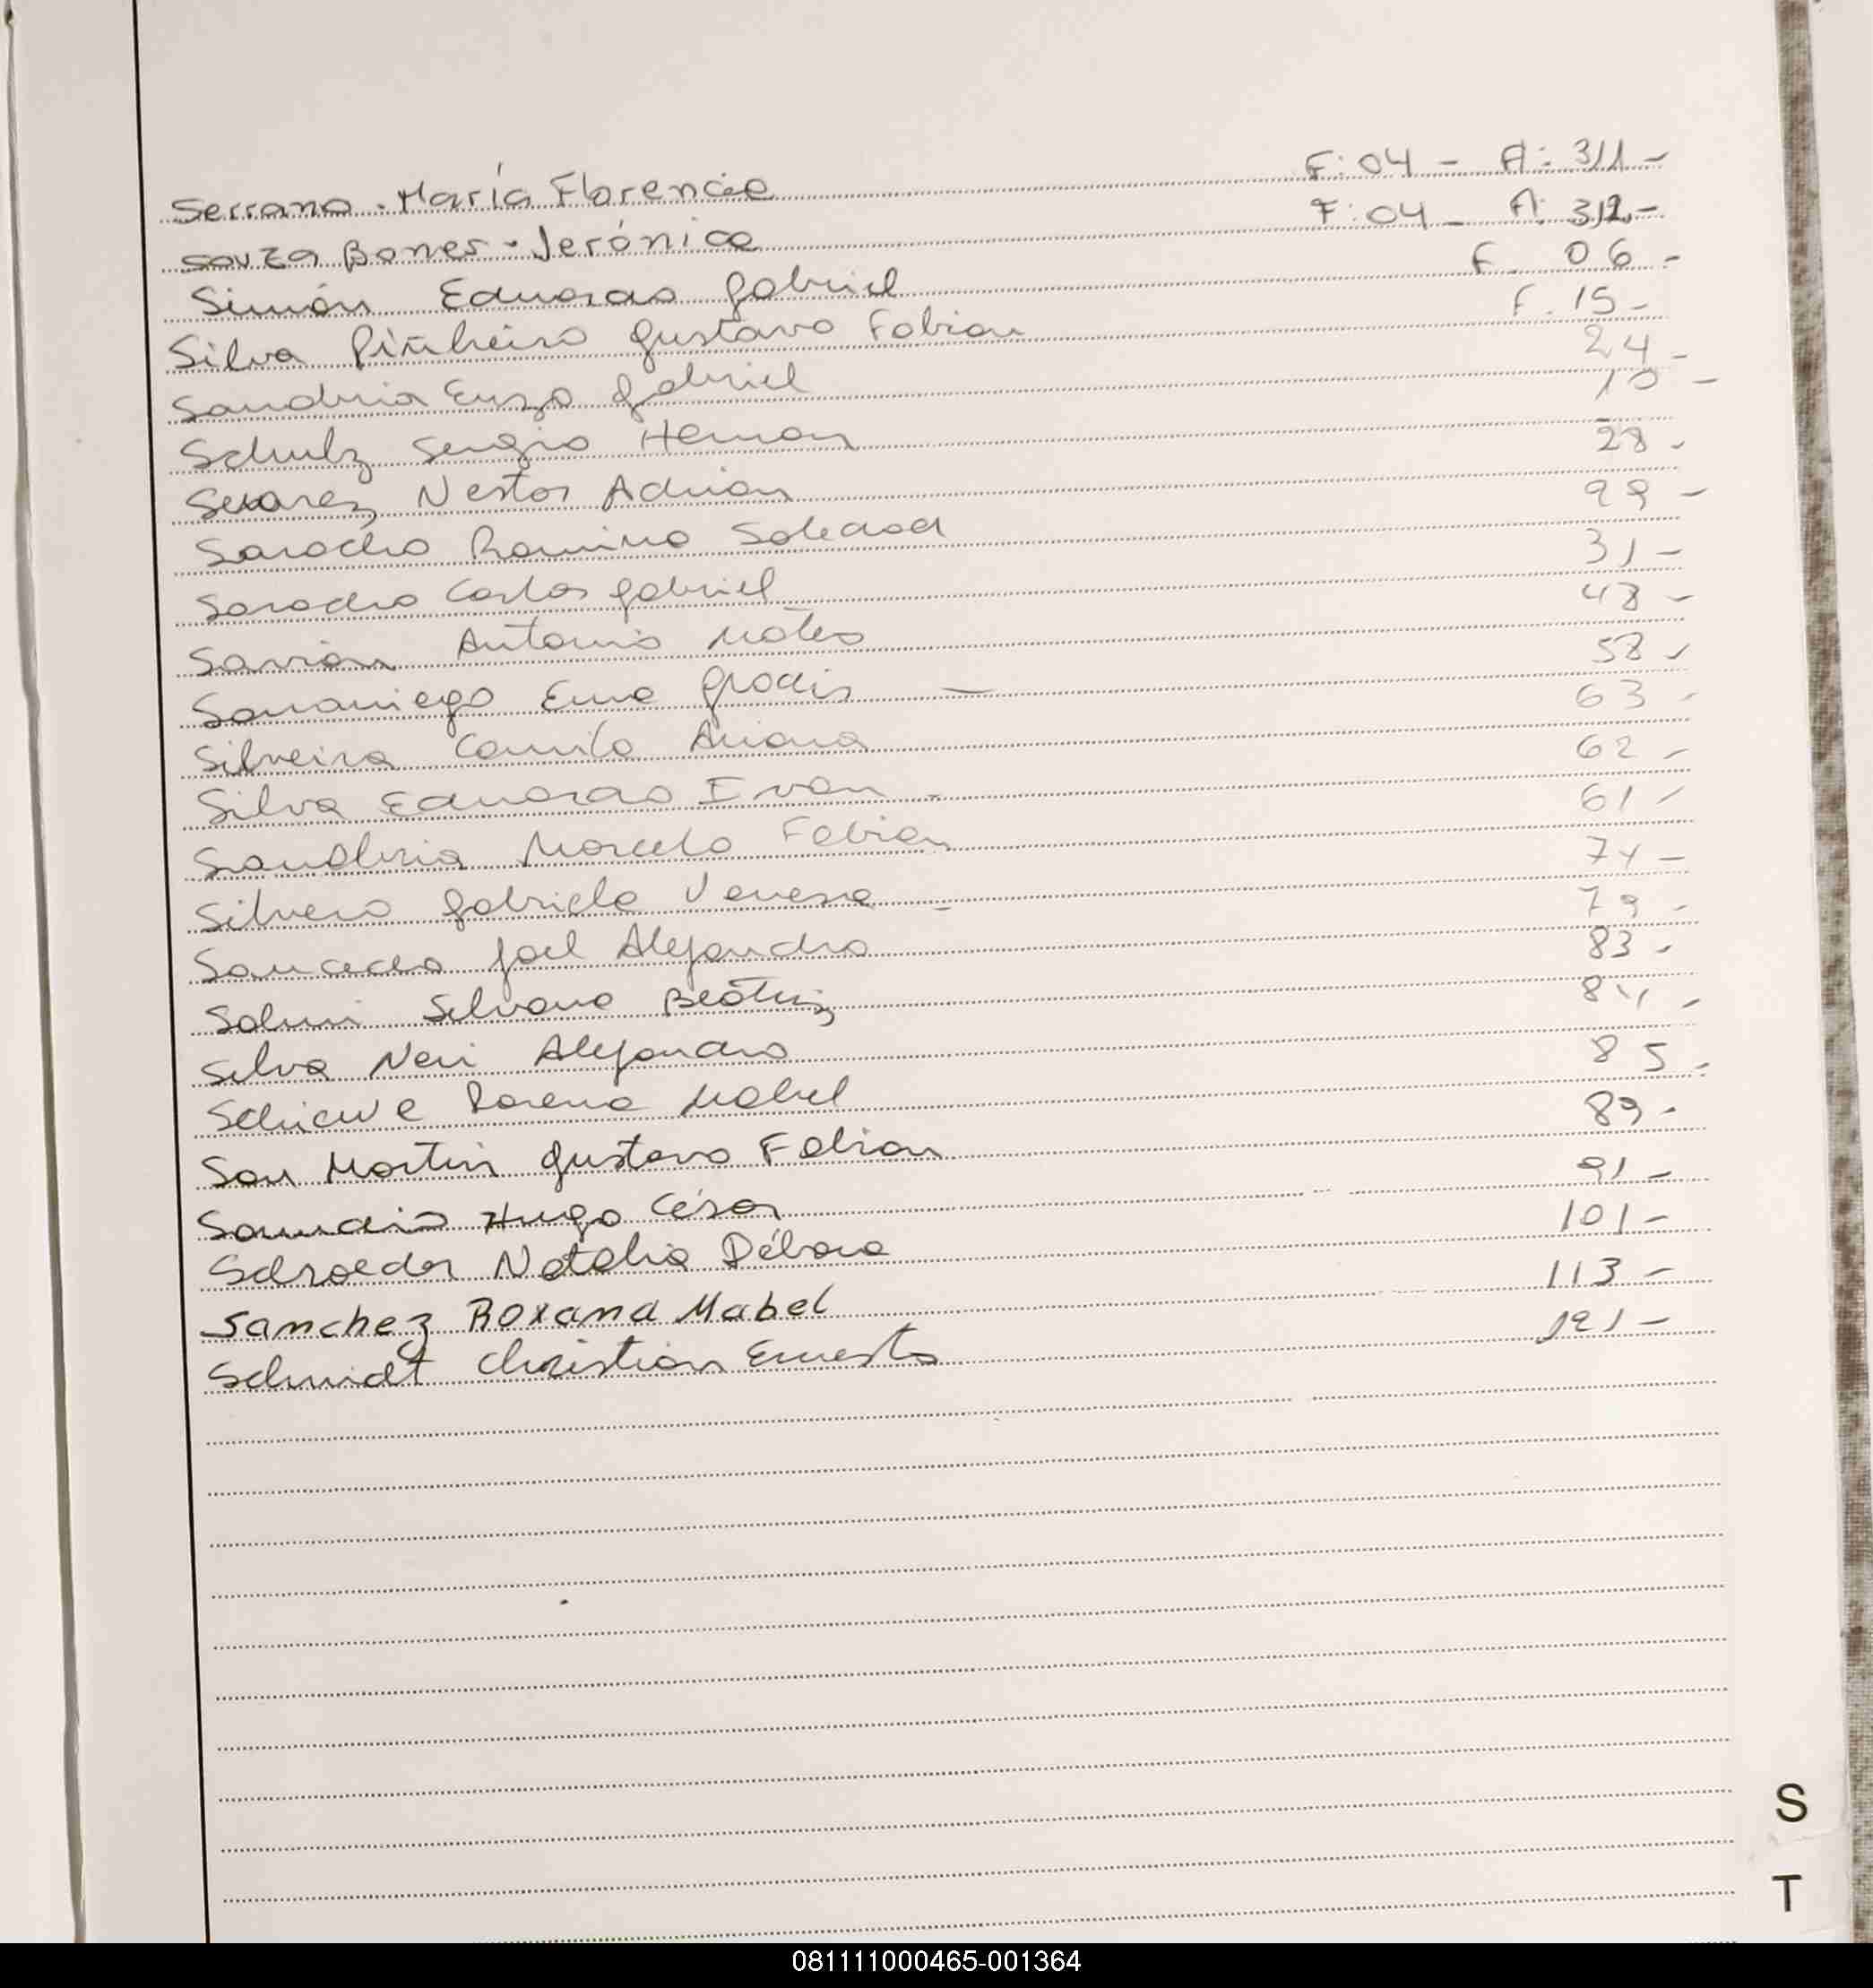 Serrano - María Florencia F: 04 - A: 311 -
Souza Bones - Jerónica F: 04 - A: 312 -
Simón Eduardo Gabriel F. 06 -
Silva Piñheiro Gustavo Fabian F. 15 -
Sandria Enzo Gabriel 24 -
Schulz Sergio Hernan 10 -
Suarez Nestor Adrian 28 -
Saracho Romina Soledad 29 -
Saracho Carlos Gabriel 31 -
Antonio Mateo 48 -
Samaniego 58 -
Silveira Camila Ariana 63 -
Silva Eduardo Ivan - 62 -
Sandria Marcelo Fabian 61 -
Silvero Gabriela Vanesa - 74 -
Joel Alejandro 79 -
Silvana Beatriz 83 -
Silva Neri Alejandro 84 -
Lorena Mabel 85 -
San Martin Gustavo Fabian 89 -
Hugo César 91 -
Schroeder Natalia Débora 101 -
Sanchez Roxana Mabel 113 -
Schmidt Christian Ernesto 121 -
S
T
081111000465-001364